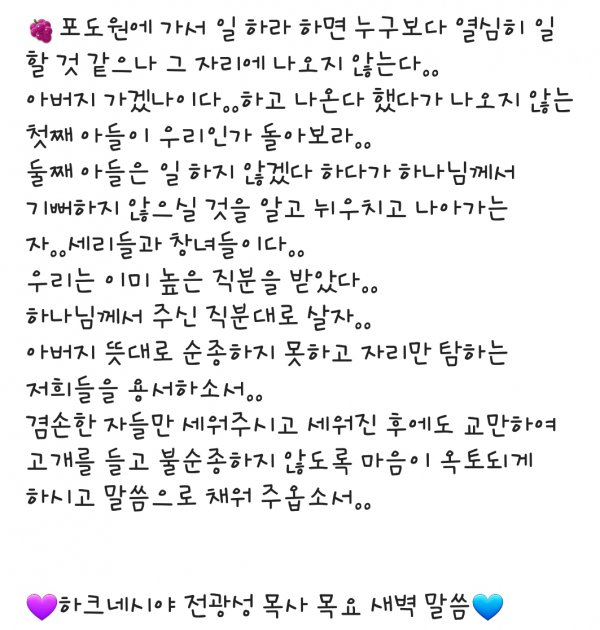 🍇 포도원에 가서 일 하라 하면 누구보다 열심히 일
할 것 같으나 그 자리에 나오지 않는다。。
아버지 가겠나이다。。하고 나온다 했다가 나오지 않는
첫째 아들이 우리인가 돌아보라。。
둘째 아들은 일 하지 않겠다 하다가 하나님께서
기뻐하지 않으실 것을 알고 뉘우치고 나아가는
자。。세리들과 창녀들이다。。
우리는 이미 높은 직분을 받았다。。
하나님께서 주신 직분대로 살자。。
아버지 뜻대로 순종하지 못하고 자리만 탐하는
저희들을 용서하소서。。
겸손한 자들만 세워주시고 세워진 후에도 교만하여
고개를 들고 불순종하지 않도록 마음이 옥토되게
하시고 말씀으로 채워 주옵소서。。
💜하크네시야 전광성 목사 목요 새벽 말씀💙